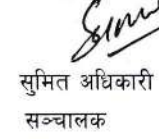 सुमित अधिकारी
सञ्चालक